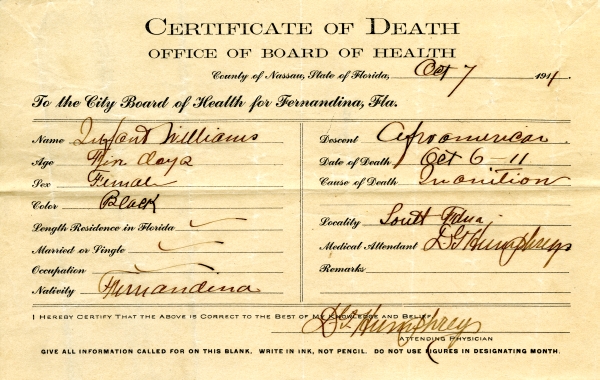 CERTIFICATE OF DEATH
OFFICE OF BOARD OF HEALTH
County of Nassau, State of Florida, Oct 7 1911.
To the City Board of Health for Fernandina, Fla.
Name Infant Williams
Age Nin days
Sex Female
Color Black
Length Residence in Florida
Married or Single
Occupation
Nativity Fernandina
Descent Afroamerican.
Date of Death Oct 6-11
Cause of Death Inanition
Locality South Fdna.
Medical Attendant Humphreys
Remarks
I HEREBY CERTIFY THAT THE ABOVE IS CORRECT TO THE BEST OF MY KNOWLEDGE AND BELIEF
Humphreys
ATTENDING PHYSICIAN
GIVE ALL INFORMATION CALLED FOR ON THIS BLANK. WRITE IN INK, NOT PENCIL. DO NOT USE FIGURES IN DESIGNATING MONTH.